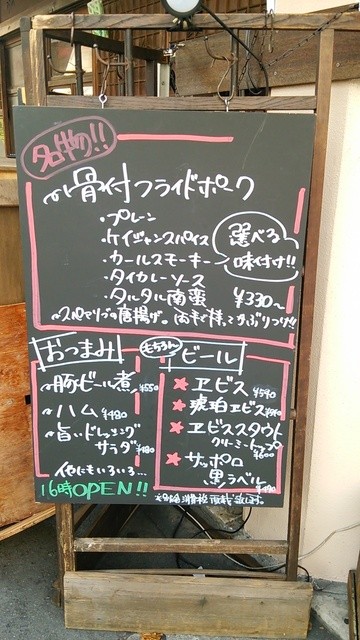 名物!!
骨付フライドポーク
・プレーン
・ケイジャンスパイス
・カールスモーキー
・タイカレーソース
・タルタル南蛮
選べる
味付け!!
¥330~
スペアリブの唐揚げ。両手で持ってかぶりつけ!!
おつまみ
豚ビール煮 ¥550
ハム ¥480
旨いドレッシング
サラダ ¥480
他にもいろいろ…
16時OPEN!!
もちろん
ビール
★ヱビス ¥540
★琥珀ヱビス
★ヱビススタウト
クリーミートップ
¥600
★サッポロ
黒ラベル
¥490